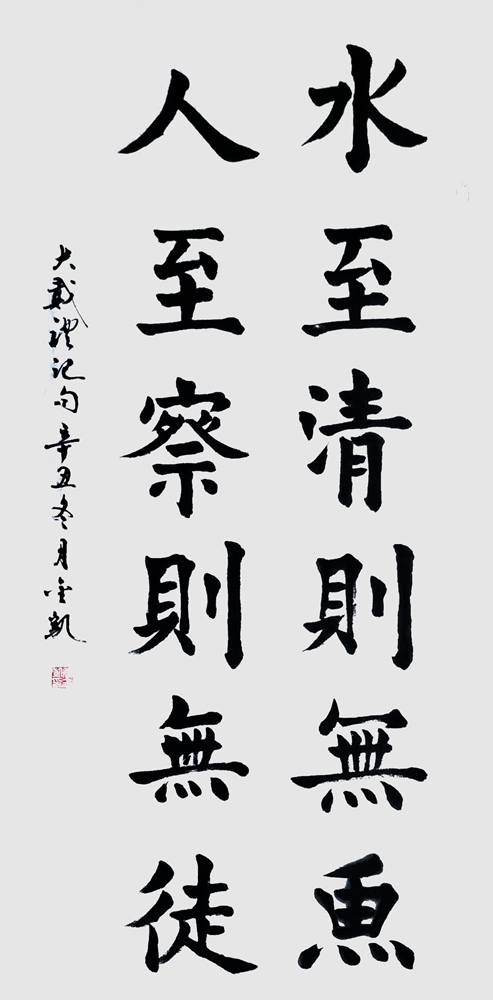 水至清則無魚
人至察則無徒
大戴禮記句辛丑冬月金凱